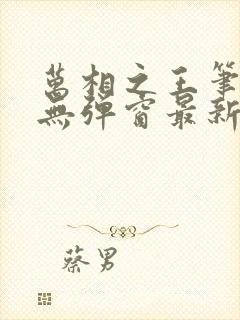 萬相之王筆
無彈窗最新
蔡男